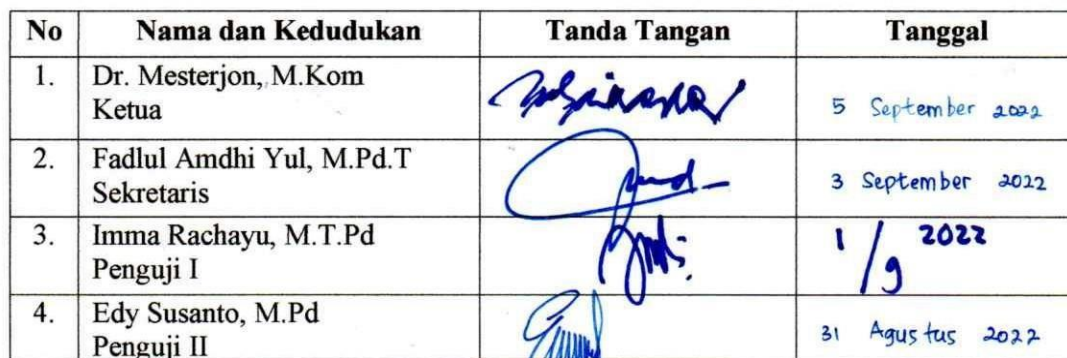 No Nama dan Kedudukan Tanda Tangan Tanggal
1. Dr. Mesterjon, M.Kom
Ketua 5 September 2022
2. Fadlul Amdhi Yul, M.Pd.T
Sekretaris 3 September 2022
3. Imma Rachayu, M.T.Pd 1/9 2022
Penguji I
4. Edy Susanto, M.Pd
Penguji II 31 Agustus 2022